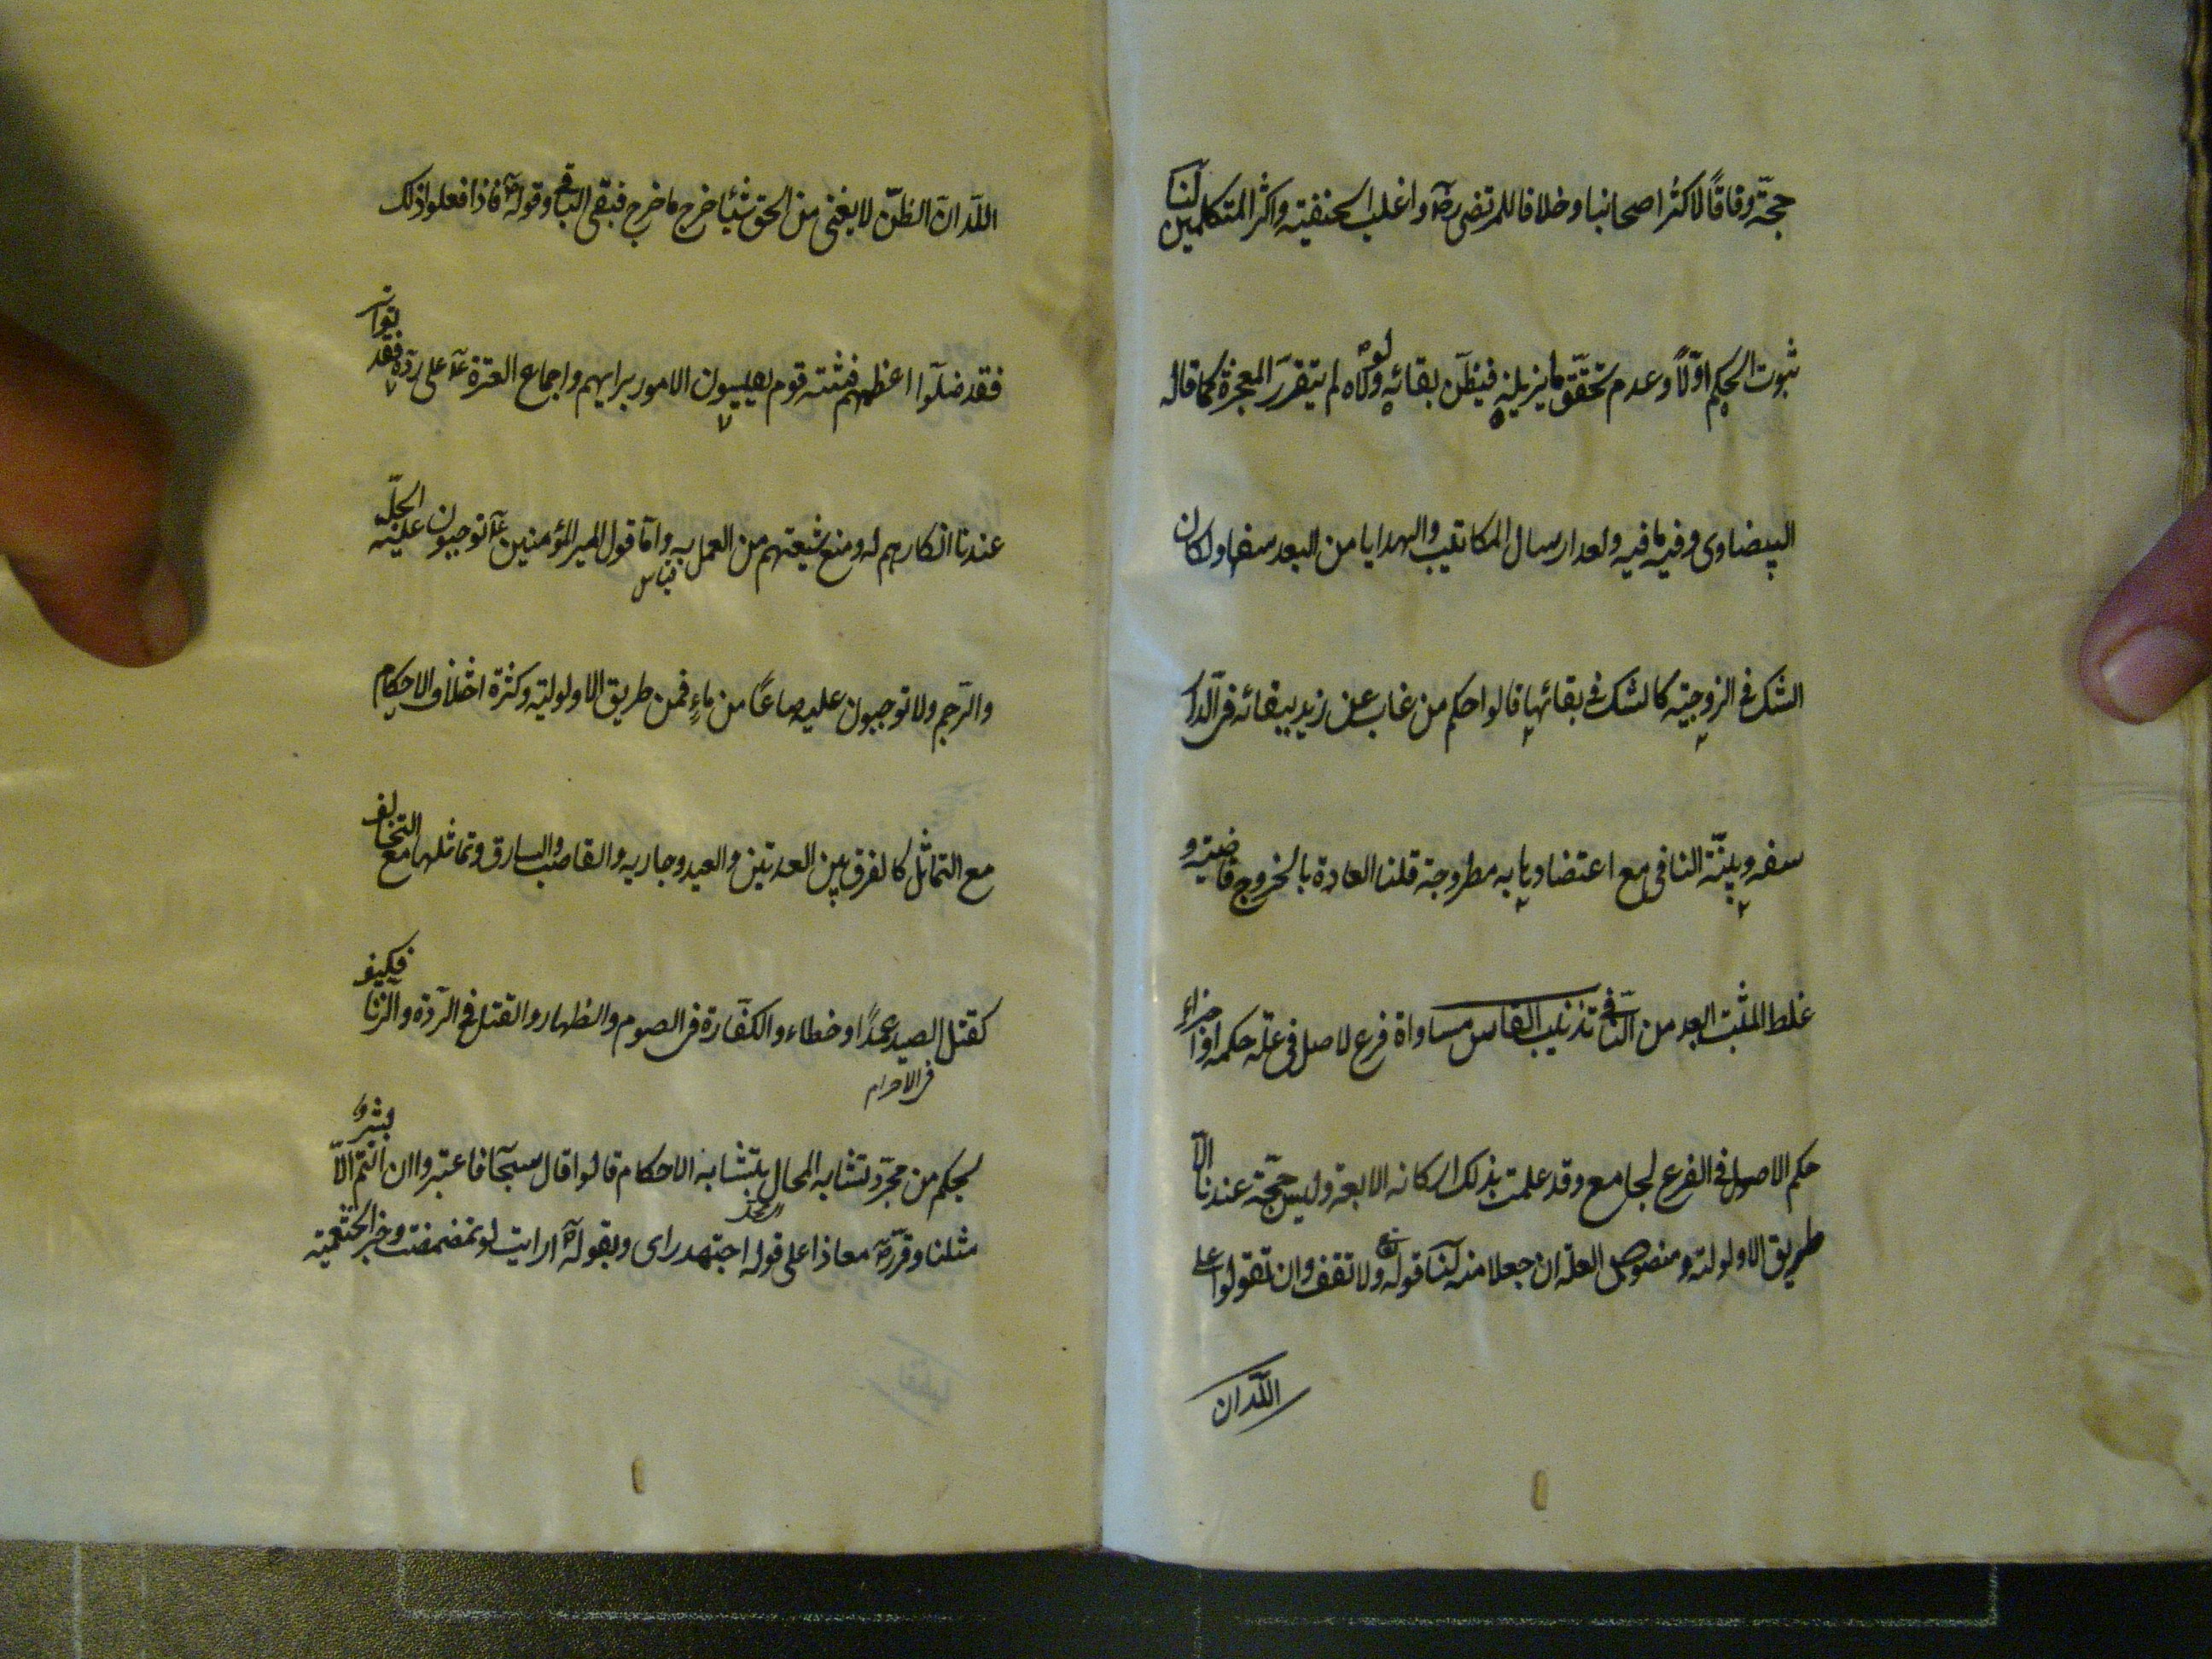 حجّة وفاقًا لاكثر اصحابنا وخلافا للمرتضى رضه واغلب الحنفية واكثر المتكلمين لنا
ثبوت الحكم اوّلًا وعدم تحقّق ما يزيله فيظنّ بقائه ولولاه لم يتقرر المعجزة كما قاله
البيضاوى وفيه ما فيه ولعد ارسال المكاتيب والهدايا من البعد سفها ولكان
الشك فى الزوجية كالشك فى بقائها قالوا حكم من غاب عن زيد ببقائه فى الدار
سفه وبيّنة النافى مع اعتضادها به مطروحة قلنا العادة بالخروج قاضية و
غلط المثبت ابعد من النافى تذنيب القياس مساواة فرع لاصل فى علة حكمه او اجراء
حكم الاصول فى الفرع لجامع وقد علمت بذلك اركانه الاربعة وليس حجّة عندنا الا
طريق الاولولية ومنصوص العلة ان جعلا منه لنا قوله تع ولا تقف وان تقولوا على
اللّه ان
اللّه ان الظنّ لا يغنى من الحق شيئا خرج ما خرج فبقى الباقى وقوله ص فاذا فعلوا ذلك
فقد ضلّوا اعظمهم فتنة قوم يقيسون الامور برايهم واجماع العترة ع على ردّه فقد تواتر
عندنا انكارهم له ومنع شيعتهم من العمل به واما قول امير المؤمنين ع اتوجبون عليه الجلد
قياس
والرجم ولا توجبون عليه صاعًا من ماءٍ فمن طريق الاولولية وكثرة اختلاف الاحكام
مع التماثل كالفرق بين العدتين والعيد وجاريه والغاصب والسارق وتماثلها مع التخالف
كقتل الصيد عمدًا وخطاء والكفّارة فى الصوم والظهار والقتل فى الردة والزنا فكيف
فى الاحرام
يحكم من مجرّد تشابه المحال بتشابه الاحكام قالوا قال سبحانه فاعتبروا ان انتم الّا بشر
مثلنا وقرّر ص معاذا على قوله اجتهد راى وبقوله ص ارايت لو تمضمضت وخبر الخثعمية